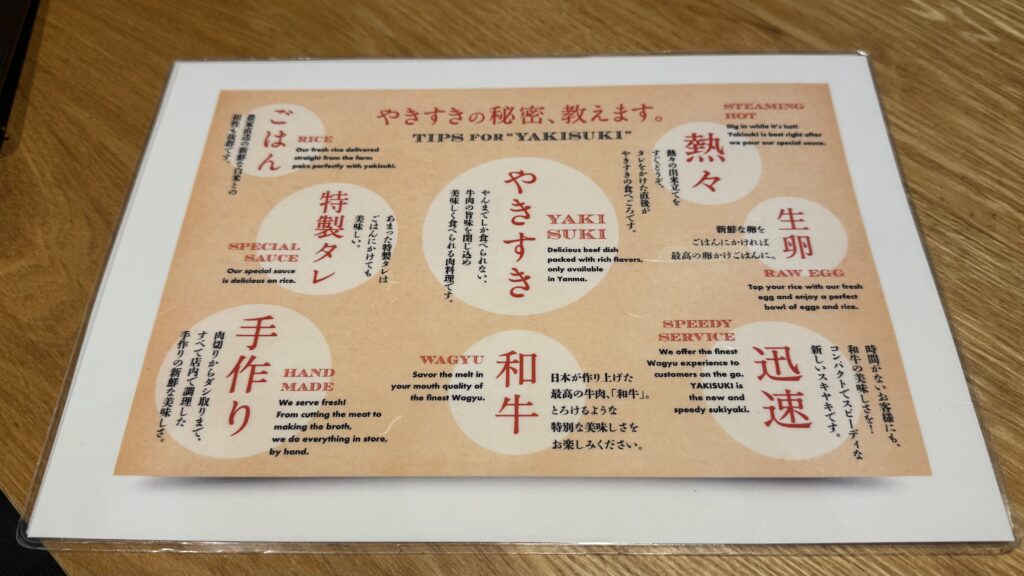 やきすきの秘密、教えます。
TIPS FOR "YAKISUKI"
ごはん
RICE
Our fresh rice delivered
straight from the farm
pairs perfectly with yakisuki.
農家直送の新鮮な白米との
相性も抜群です。
熱々
STEAMING
HOT
Dig in while it's hot!
Yakisuki is best right after
we pour our special sauce.
熱々の出来立てを
すぐどうぞ。
タレをかけた直後が
やきすきの食べごろです。
特製タレ
SPECIAL
SAUCE
Our special sauce
is delicious on rice.
あまった特製タレは
ごはんにかけても
美味しい。
やきすき
YAKI
SUKI
Delicious beef dish
packed with rich flavors,
only available
in Yanma.
やんまでしか食べられない、
牛肉の旨味を閉じ込め
美味しく食べられる肉料理です。
生卵
新鮮な卵を
ごはんにかければ
最高の卵かけごはんに。
RAW EGG
Top your rice with our fresh
egg and enjoy a perfect
bowl of eggs and rice.
手作り
HAND
MADE
We serve fresh!
From cutting the meat to
making the broth,
we do everything in store,
by hand.
肉切りからダシ取りまで、
すべて店内で調理した
手作りの新鮮な美味しさ。
和牛
WAGYU
Savor the melt in
your mouth quality of
the finest Wagyu.
日本が作り上げた
最高の牛肉、「和牛」。
とろけるような
特別な美味しさを
お楽しみください。
迅速
SPEEDY
SERVICE
We offer the finest
Wagyu experience to
customers on the go.
YAKISUKI is
the new and
speedy sukiyaki.
時間がないお客様にも、
和牛の美味しさを!
コンパクトでスピーディな
新しいスキヤキです。